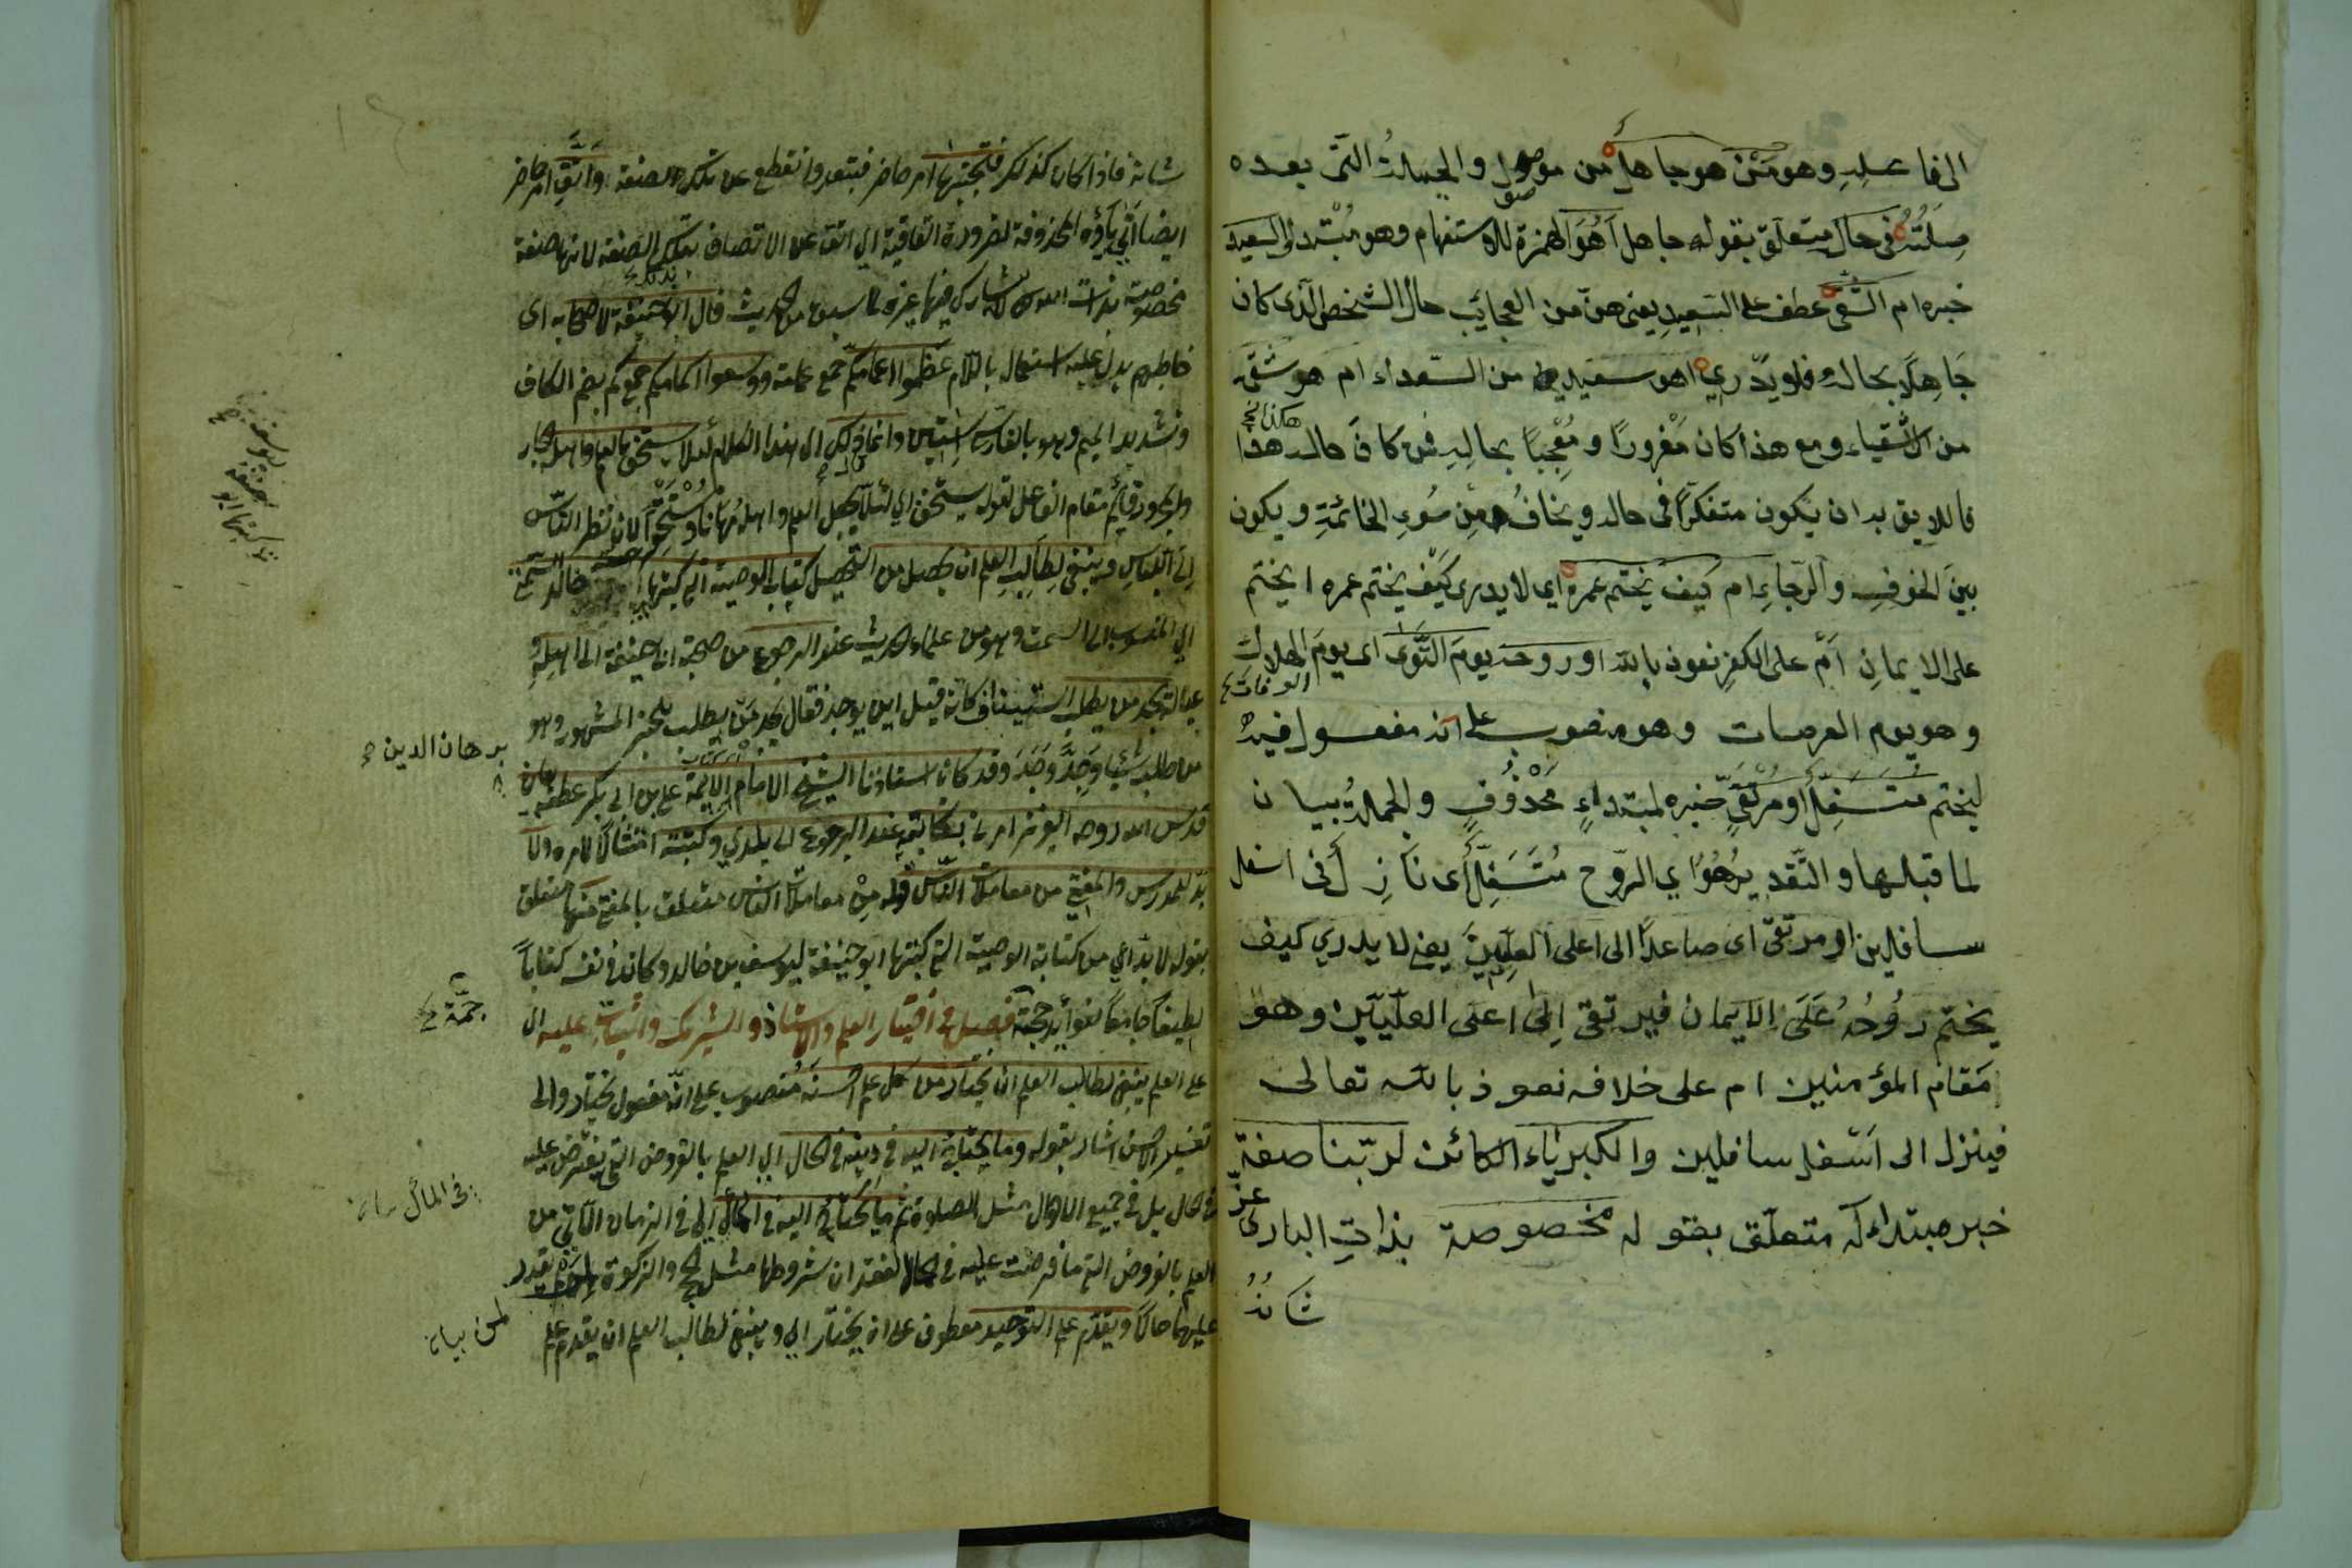 الى فاعله وهو مَنْ هو جاهل من موصول والجملةُ التى بعده
صِلَتُهُ فى حال متعلق بقوله جاهل أَهُوَ الهمزة للاستفهام وهو مُبْتدا والسعيد
خبره ام الشقى عطف على السَعِيدِ يعنى من العجايَب حال الشخص الذى كان
جَاهِلًا بحاله فلا يَدْرِي اهو سعيد من السّعداء ام هو شقى
هكذا
من الاشقياء ومع هذا كان مَغْرورًا ومُعْجِبًا بحالِهِ فمن كانَ حاله هذا
فاللايق به ان يَكون متفكرًا فى حاله ويخافُ مِنْ سُوءِ الخاتمةِ ويكون
بينَ الخوفِ والرّجاءِ ام كيفَ يُختم عمره اى لا يدرى كَيْفَ يختم عمره ايختم
على الايمانِ اَمْ على الكفرِ نعوذ بالله او روحه يومَ التَّوَى اى يومَ الهلاكِ
الوفات
وهو يوم العرصات وهو منصوب على انه مفعول فيه
ليختم مُتَسَفِّلٌ أو مُرْتَقٍ خبره لمبتداءٍ مَحْذُوفٍ والجملةُ بيان
لما قبلها والتّقدير هُوَ اي الرّوح مُتَسَفِّلٌ أى نَازِل فى اسفل
سافلين او مرتقى اى صاعدًا الى اعلى العِلِّيِينَ يعنى لا يدري كيف
يختم رُوُحُهُ عَلَى الايمان فيرتقى اِلىٰ اعلى العلّيّين وهو
مَقام المؤمنين ام على خلافه نعوذ بالله تعالى
فينزل الى اَسْفل سافلين والكبرياء الكائن لربّنا صفة
خبر مبتداء له متعلّق بقوله مخصوصة بذاتِ البارى عزّ
شَانُهُ
شانه فاذا كان كذلك فتجنّبها امر حاضر فبتعد وانقطع عن تلك الصفة وَاتَّقِ امر حاضر
ايضا اُتي ياؤه المحذوفة لضرورة القافية اى اتق عن الاتصاف بتلك الصفة لانها صفة
مخصوصة بذات الله لا يشارك فيها غيره لما سبق من الحديث قال ابو حنيفة لاصحابه اى
خاطبهم يدل عليه استعمال باللام عظّموا عمائمكم جمع عمامة ووسعوا اكمامكم جمع كم بضم الكاف
وتشديد الميم وهو بالفارسى استين وانما قال ذلك اى هذا الكلام لئلا يستخف بالعلم واهله الجار
والمجرور قائم مقام الفاعل لقوله يستخف اي لئلّا يجعل العلم واهله مُهانًا ومستخفًا لان نظر النّاس
اِلى اللباسِ وينبغى لطالب العلم ان يحصل من التحصيل كتاب الوصية التى كتبها خالد السّمتى
اي المنسوب الى السمت وهو من علماء الحديث عند الرجوع من صحبة ابى حنيفة الى اهله و
عياله يجد من يطلب استيناف كانه قيل اين يوجد فقال يجد مَن يطلب للخبر المشهور وهو
من طلب شيئا وَجَدَّ وَجَدَ وقد كان استاذنا الشيخ الامام برهان الائمة على بن ابى بكر عطف بيان
قدس الله روحه العزيز امرنى بكتابته عند الرجوع الى بلدي وكتبته امتثالًا لامره ولا
بدّ للمدرس والمفتى من معاملات النّاس قوله مِنْ معاملات الناس متعلق بالمفتى منها متعلق
بقوله لا بدّ اي من كتابة الوصية التى كتبها ابو حنيفة ليوسف بن خالد وكان فى نفسه كتاباً
لطيفًا جامعًا لفوائد جمّة فصل فى اختيار العلم والاستاذ والشريك واثبات عليه اى
على العلم ينبغى لطالب العلم ان يختار من كل علم احسنَهُ منصوب على انّه مفعول يختار والى
تفسير الاحسن اشار بقوله وما يحتاج اليه فى دينه فى الحال اي العلم بالفروض التى يفترض عليه
فى الحال بل فى جميع الاحوال مثل الصلوة ثم ما يحتاج اليه فى المآل اي فى الزمان الآتى من
العلم بالفروض التى ما فرضت عليه فى الحال لفقدان شروطها مثل الحج والزكوة يقدر
عليهما حالًا ويقدّم علم التوحيد معطوف على ان يختار اي وينبغى لطالب العلم ان يقدم علم
برهان الدين
جمّة
فى المآل
لمن بيان